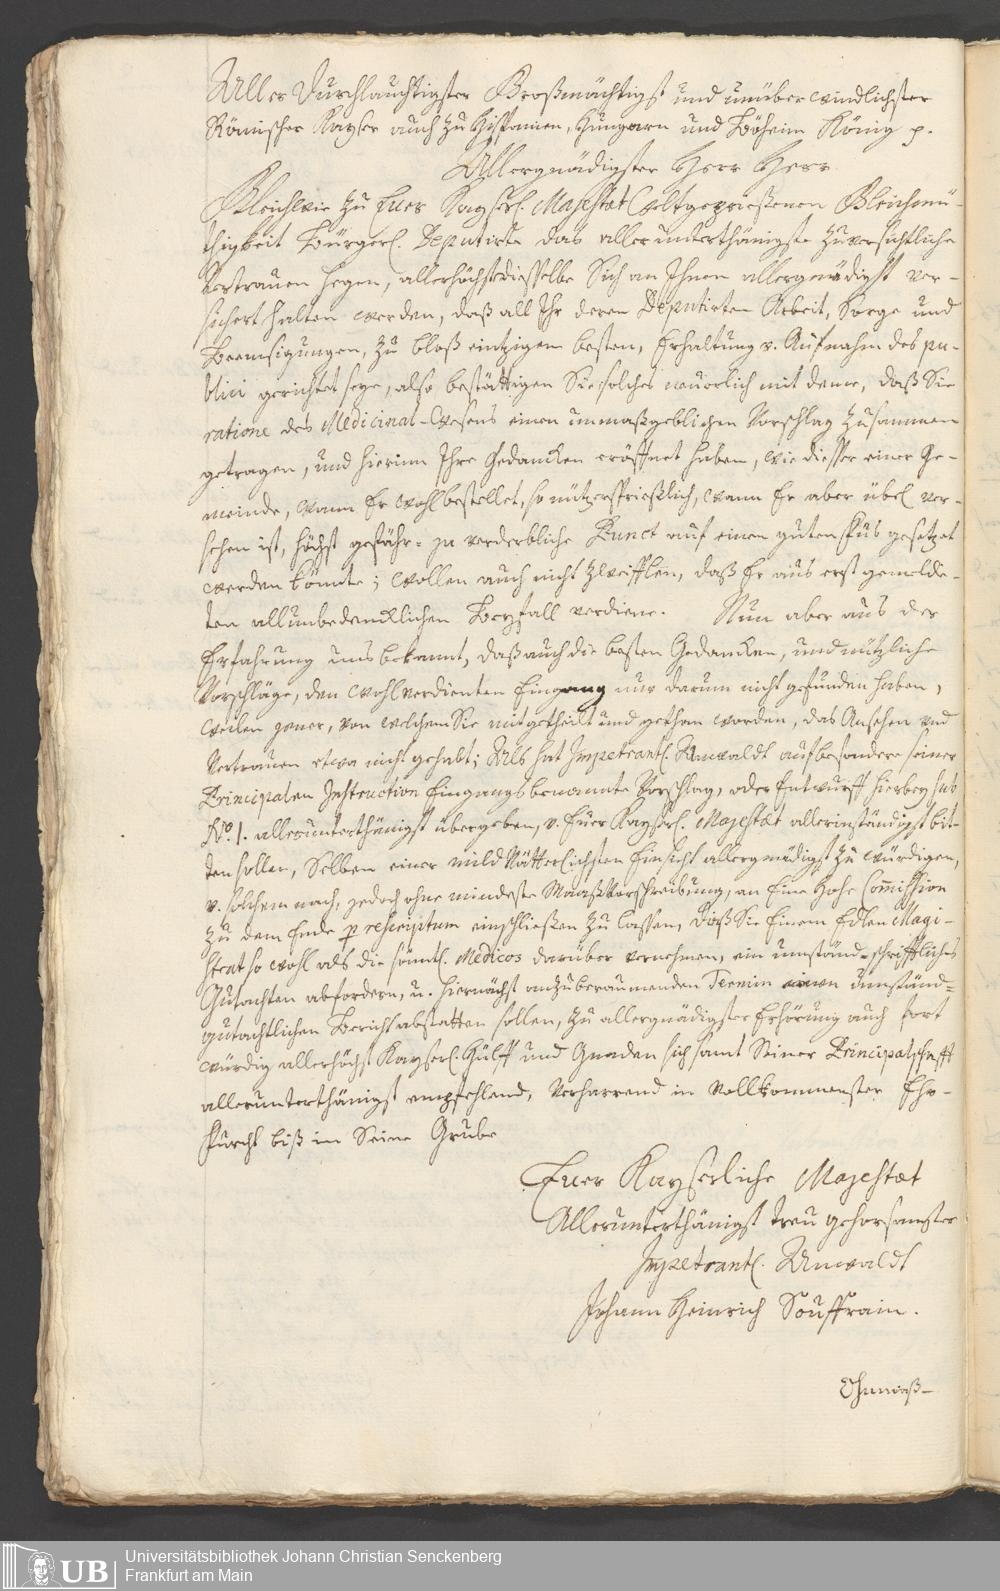 Aller Durchlauchtigster Großmächtigst und unüberwindlichster
Römischer Kayser auch zu Hispanien, Hungarn und Böheim König p.
Allergnädigster Herr Herr
Gleichwie zu Euer Kayserl. Majestæt Weltgeprießenen Gleichmü-
thigkeit Bürgerl. Deputirte das allerunterthänigste zuversichtliche
Vertrauen hegen, allerhöchstdiesselbe Sich an Ihnen allergnädigst ver-
sichert halten werden, daß all Ihr deren Deputirten Arbeit, Sorge und
Beemsigungen, zu bloß eintzigem besten, Erhaltung v. Aufnahm des pu-
blici gerichtet seye, also bestättigen Sie solches neuerlich mit deme, daß Sie
ratione des Medicinal-Wesens einen unmaßgeblichen Vorschlag zusammen
getragen, und hierinn Ihre Gedancken eröffnet haben, wie diesser einer Ge-
meinde, wann Er wohl bestellet, so nützersprießlich, wann Er aber übel ver-
sehen ist, höchst gefähr- zu verderbliche Punct auf einen guten Fus gesetzet
werden könnte; Wollen auch nicht zweifflen, daß Er aus erst gemelde-
ten allunbedencklichen Beyfall verdiene. Nun aber aus der
Erfahrung uns bekannt, daß auch die besten Gedancken, und nützliche
Vorschläge, den wohlverdienten Eingang nur darum nicht gefunden haben,
weilen jener, von welchem Sie mitgetheilt und gethan worden, das Ansehen und
Vertrauen etwa nicht gehabt; Als hat Impetrantl. Anwaldt auf besondere seiner
Principalen Instruction Eingangs benannte Vorschlag, oder Entwurff hierbey sub
No. 1. allerunterthänigst übergeben, v. Euer Kayserl. Majestæt allerinständigst bit-
ten sollen, Selben einer mild Vätterlichsten Einsicht allergnädigst zu würdigen,
v. solchem nach, jedoch ohne mindeste Maaßvorschreibung, an Eine hohe Commission
zu dem Ende p rescriptum einschließen zu lassen, daß Sie Einem Edlen Magi-
strat so wohl als die sämtl. Medicos darüber vernehmen, ein umständ-schrifftliches
Gutachten abfordern, u. hiernächst anzuberaumenden Termin einen umständ-
gutachtlichen Bericht abstatten sollen, zu allergnädigster Erhörung auch fort
würdig allerhöchst Kayserl. Hülff und Gnaden sich samt Seiner Principalschafft
allerunterthänigst empfehlend, verharrend in vollkommenster Ehr-
Furcht biß in Seine Grube
Euer Kayserliche Majestæt
Allerunterthänigst treu gehorsamster
Impetrantl. Anwaldt
Johann Heinrich Souffrain.
Ohnmaß-
UB
Universitätsbibliothek Johann Christian Senckenberg
Frankfurt am Main